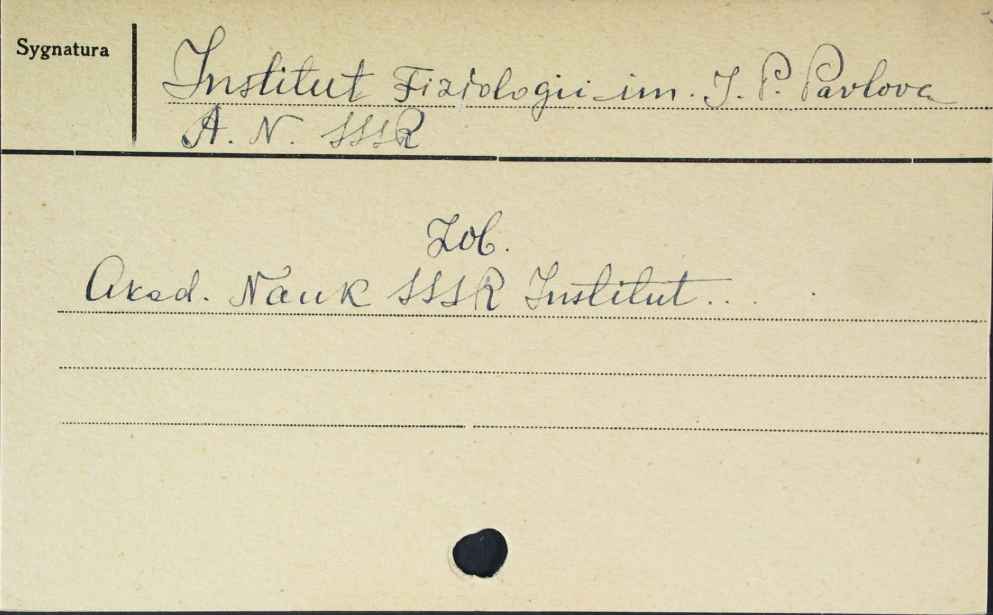 Sygnatura
Institut Fizjologii im. J. P. Pavlova
A. N. SSSR
Zob.
Akad. Nauk SSSR Institut...